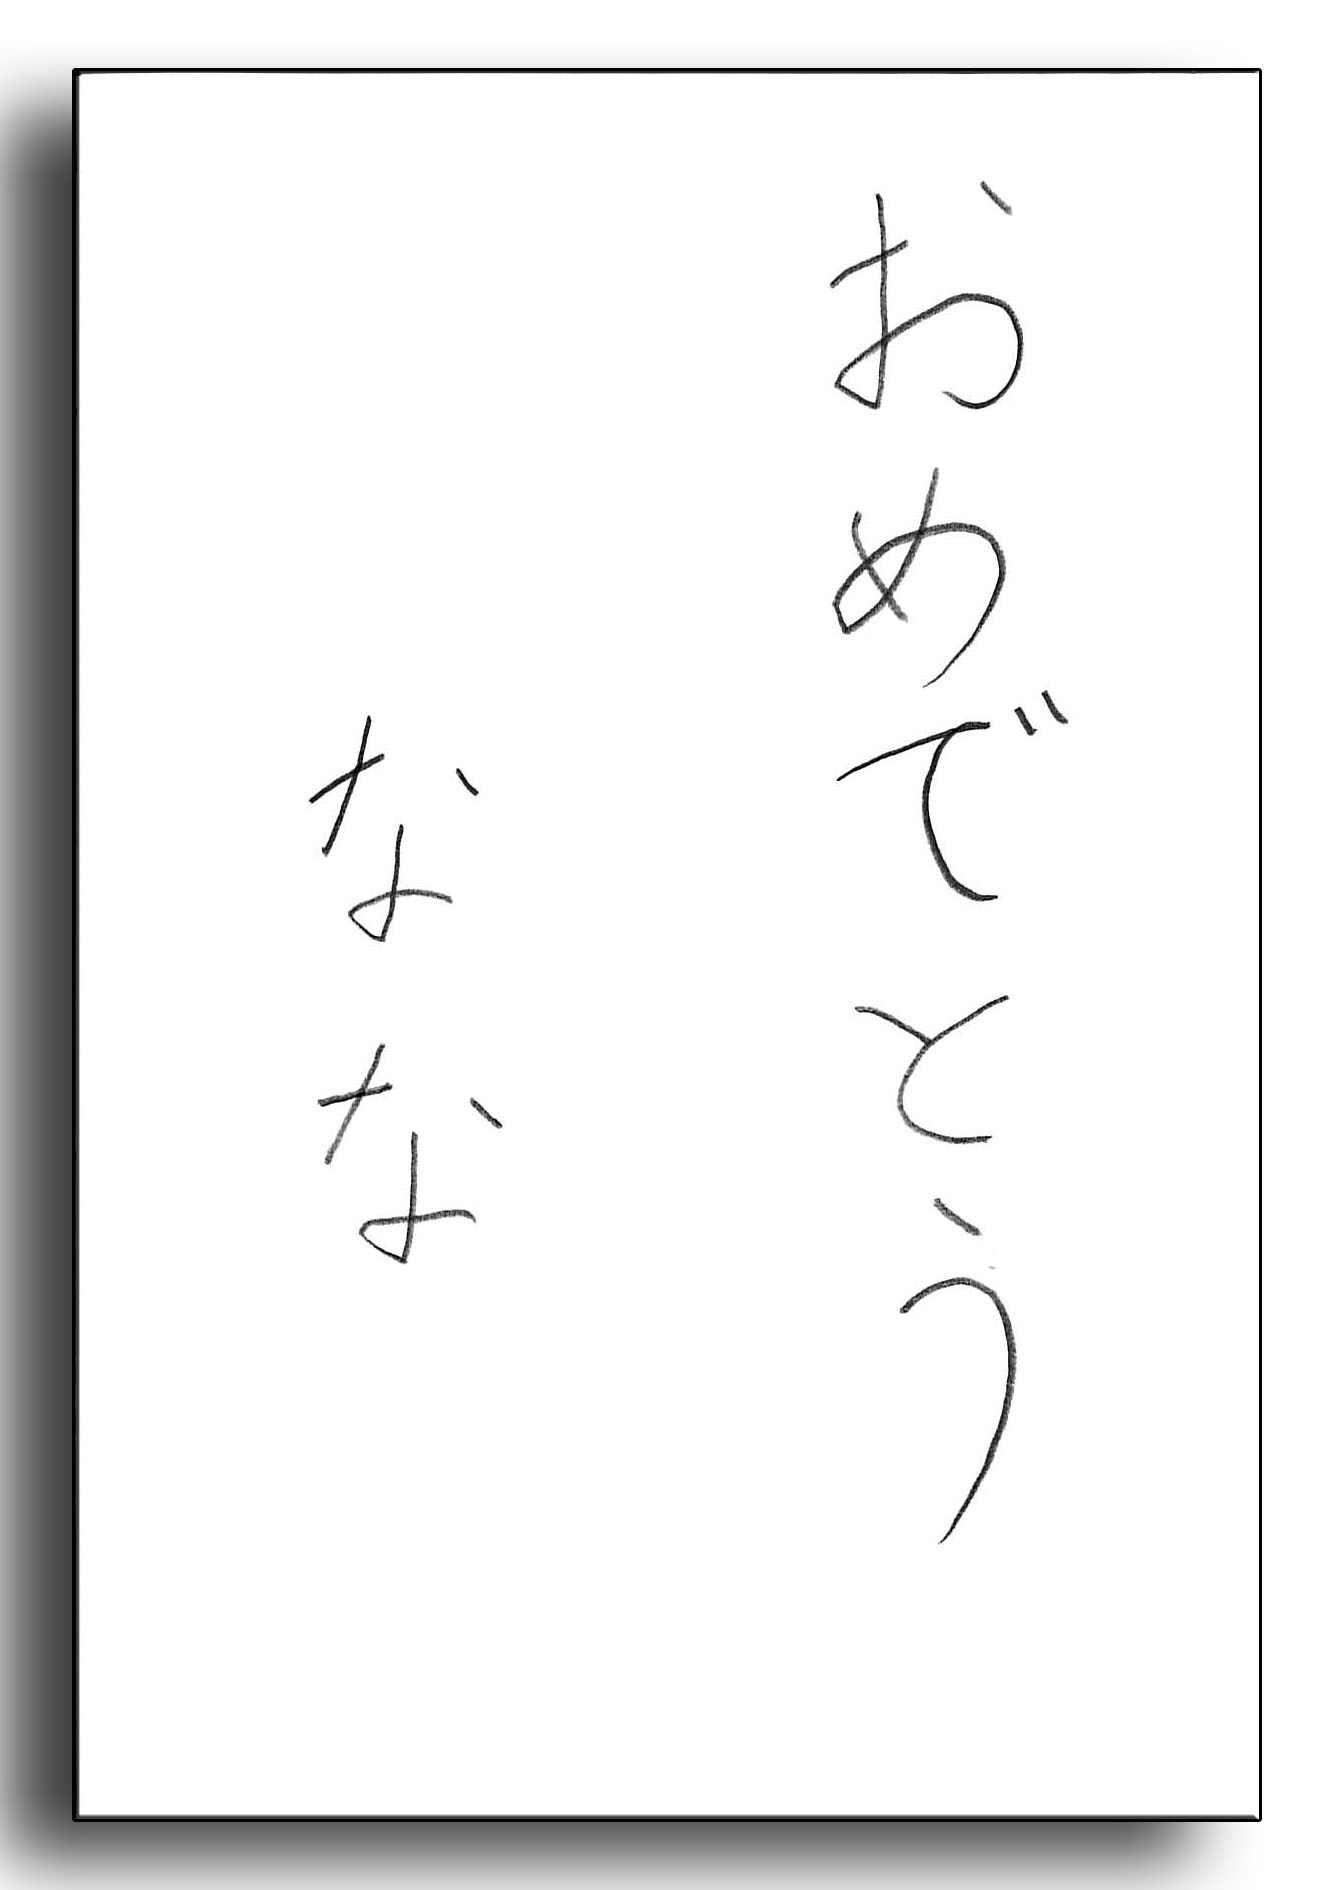 おめでとう
なな